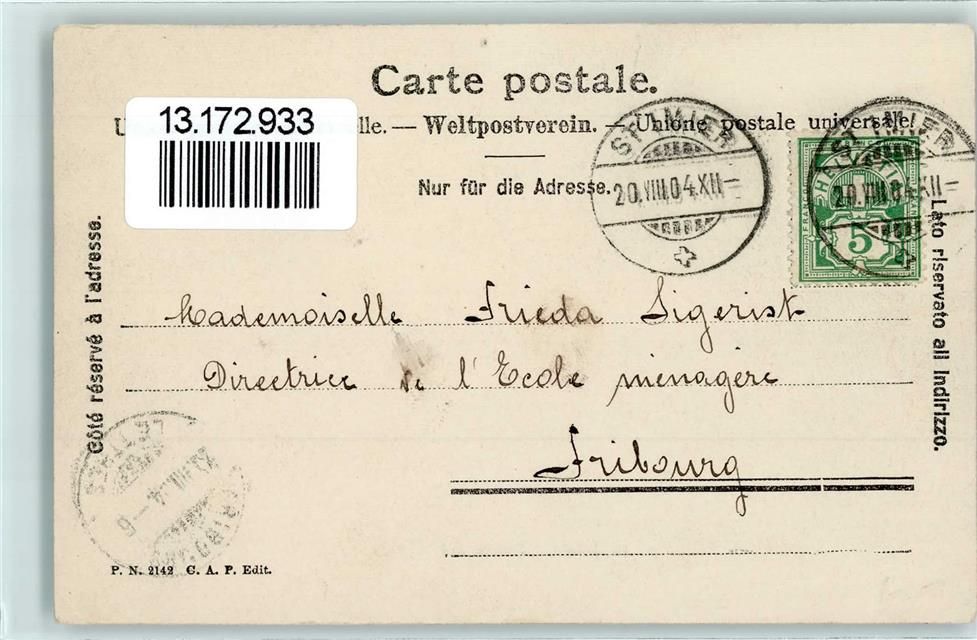 Carte postale.
13.172.933
lle. — Weltpostverein. — Unione postale universale.
Nur für die Adresse.
ST. IMIER
20.VIII.04.XII
ST. IMIER
20.VIII.04.XII
HELVETIA
FRANCO
5
Côté réservé à l'adresse.
Lato riservato all indirizzo.
Mademoiselle Frieda Sigerist
Directrice de l'Ecole ménagère
Fribourg
LETTRES
FRIBOURG
P. N. 2142 C. A. P. Edit.